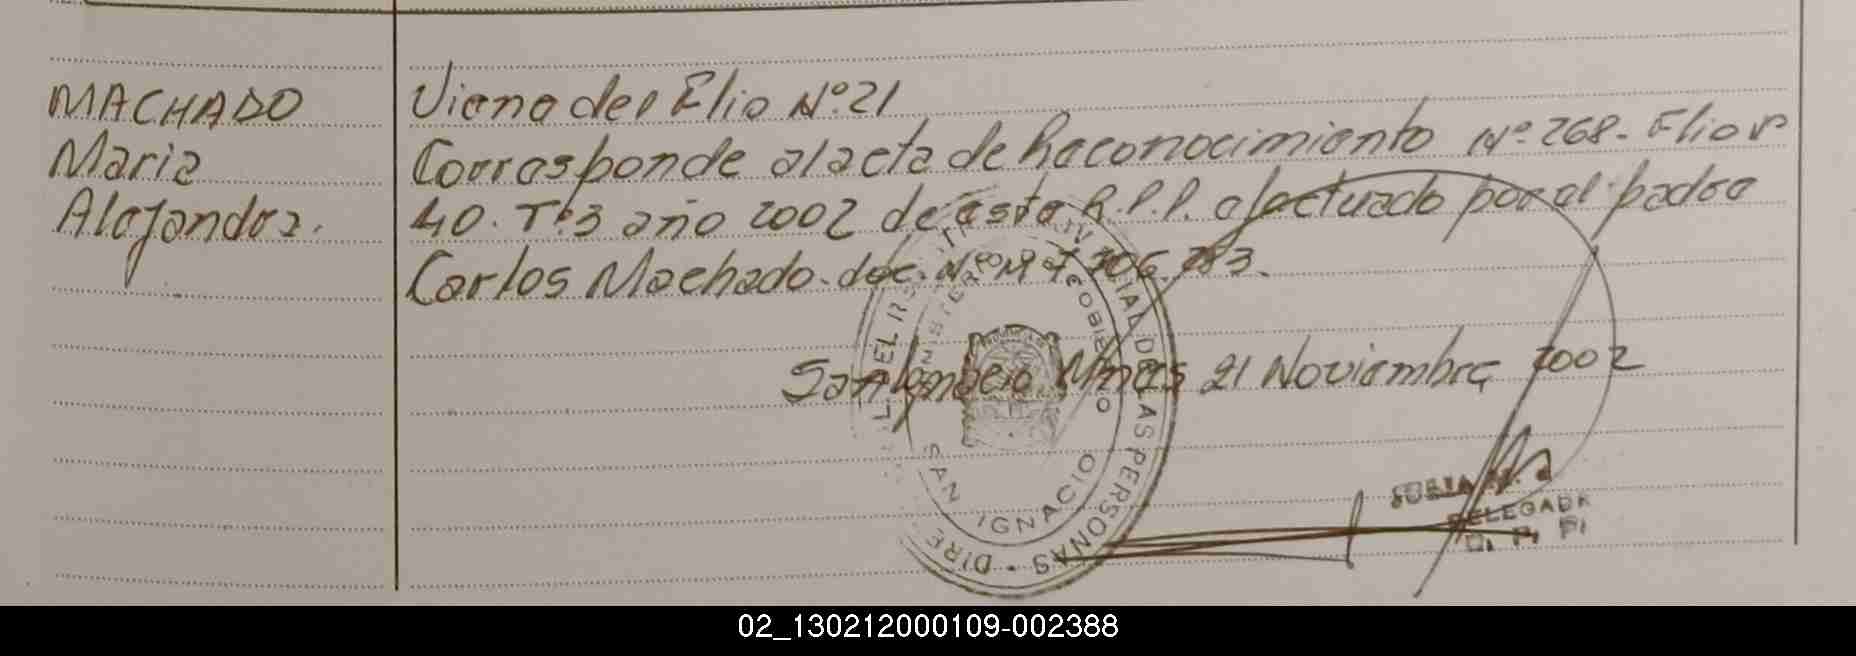 MACHADO
Maria
Alejandra.
Viene del Flio Nº 21
Corresponde al acta de Reconocimiento Nº 268 - Flio Nº
40. Tº 3 año 2002 de esta R.P.P. efectuado por el padre
Carlos Machado. doc. Nº M 7.706.
San Ignacio Mnes 21 Noviembre 2002
MINISTERIO DE GOBIERNO
SAN IGNACIO
DE LAS PERSONAS
DELEGADA
R. P. P.
02_130212000109-002388